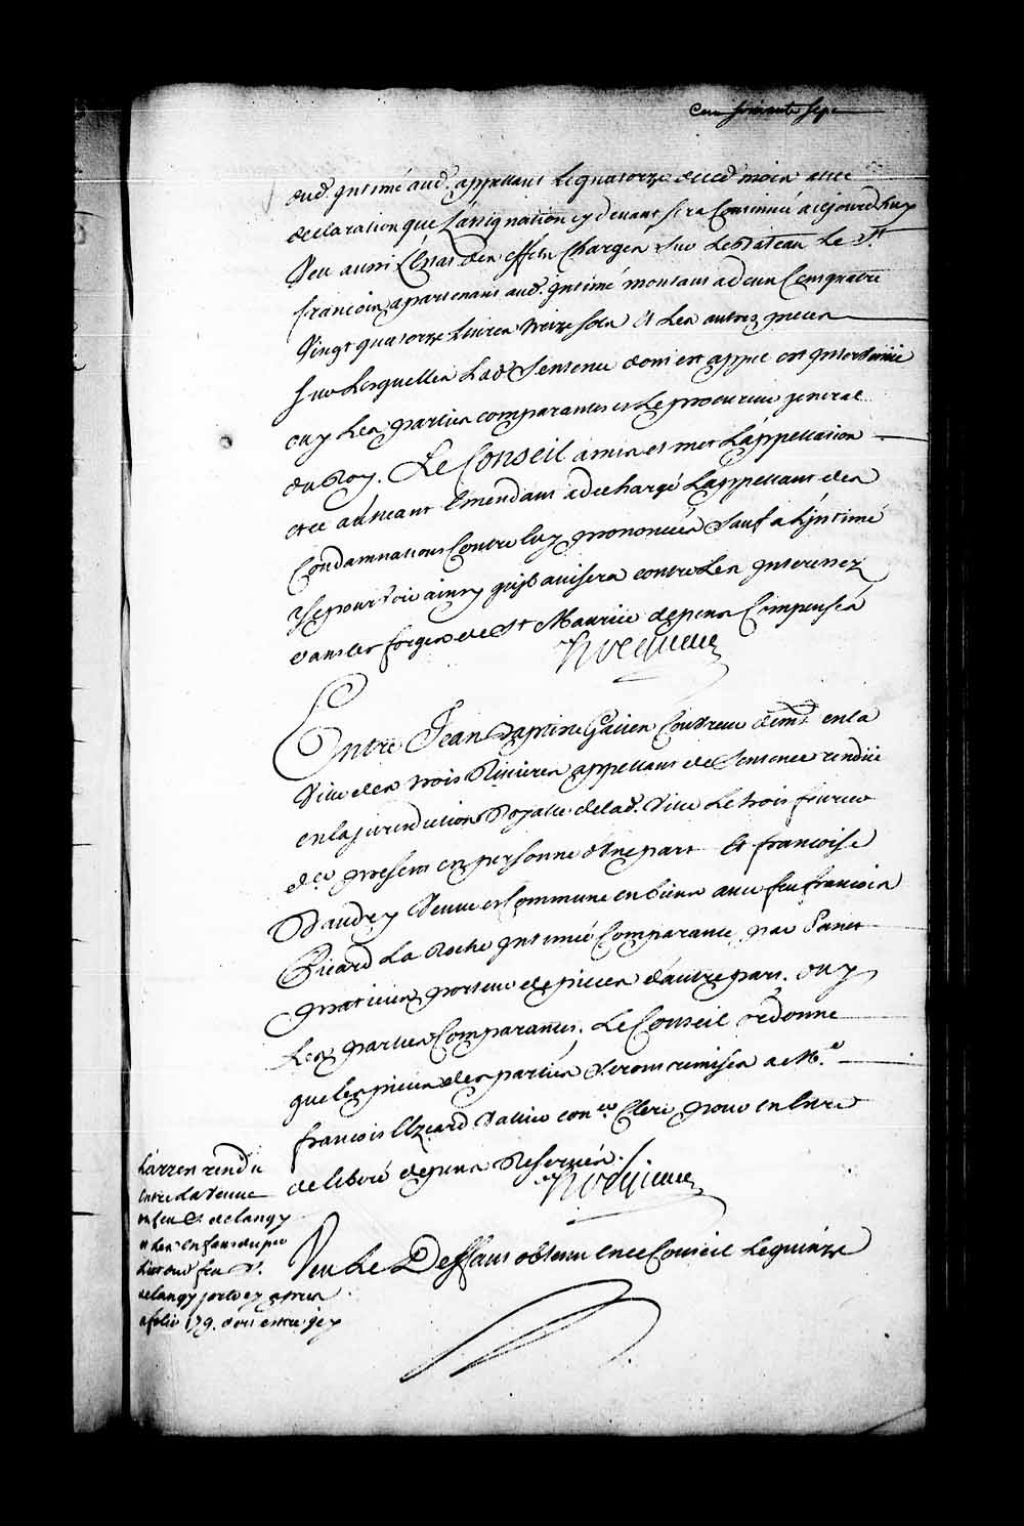 Cent soixante Sept
aud. Intimé aud. appellant le quatorze dud. mois avec
declaration que L'assignation cy devant sera Continuée a cejourd'huy
Veu aussi L'Etat des effets Chargés Sur Le Bateau Le St
francois apartenans aud. Intimé montant a deux Cent quatre
Vingt quatorze Livres treize sols Et Les autres pieces
Sur Lesquelles Lad. Sentence dont est appel est Intervenüe
ouy Les parties comparantes et Le procureur general
du Roy. Le Conseil a mis et met L'appellation
et ce au neant Emendant a dechargé L'appellant des
Condamnations Contre luy prononcées Sauf a L'intimé
a se pourvoir ainsy qu'il avisera contre Les Interessez
dans les forges de St Maurice depens Compensés
Hocquart
Entre Jean Baptiste Gatien Coutreur demt. en la
Ville des trois Rivieres appellant de Sentence rendüe
en la jurisdiction Royalle de lad. Ville Le trois fevrier
dr. present en personne d'Une part Et francoise
Baudry Veuve et Commune en biens avec feu francois
Picard La Roche Intimée Comparante par Panet
praticien porteur de pieces d'autre part. Ouy
Les parties Comparantes. Le Conseil ordonne
que les pieces des parties Seront remises a Me.
francois Elzeard Vallier coner. Clerc pour en Estre
deliberé depens Reservés.
Hocquart
L'arrest rendu
Entre La Veuve
du feu S. de Langy
et Les Enfans du per
Lit dud. feu Sr.
de Langy porté cy apres
a folio 179. doit estre icy
Veu Le Deffaut obtenu en ce Conseil Le quinze